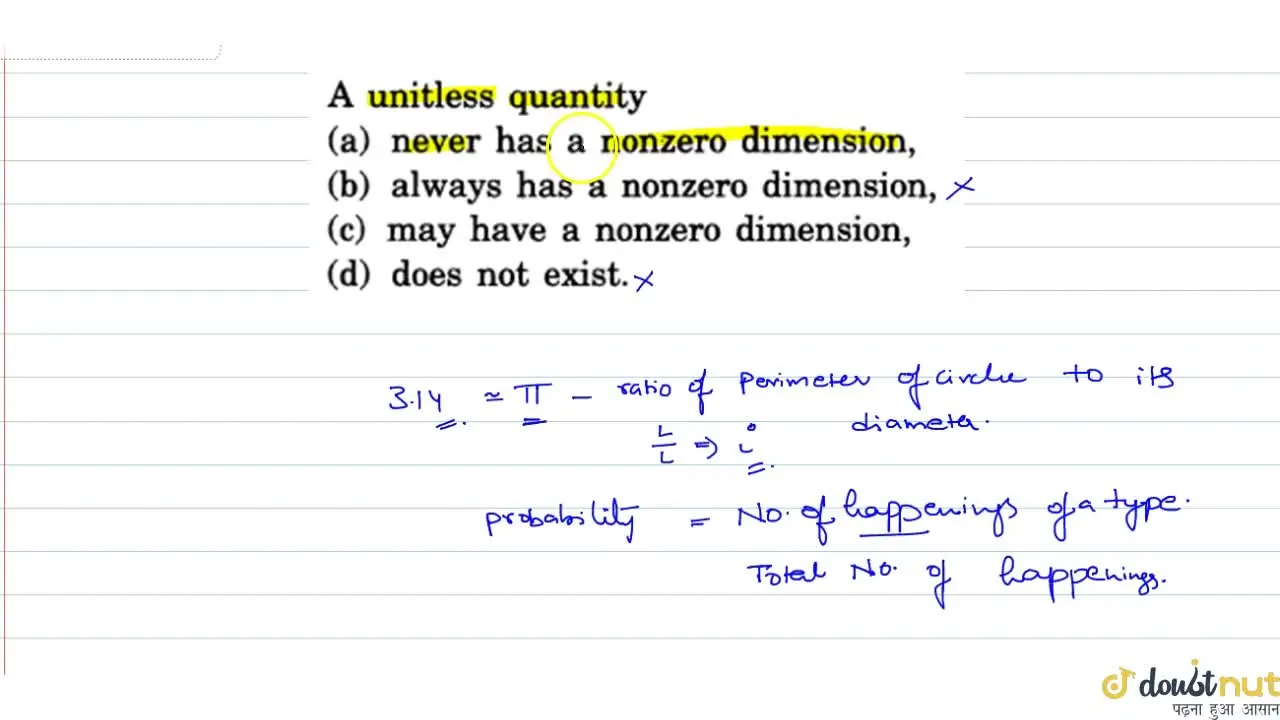 A unitless quantity
(a) never has a nonzero dimension,
(b) always has a nonzero dimension, ×
(c) may have a nonzero dimension,
(d) does not exist. ×
3.14 ≃ π - ratio of Perimeter of circle to its
diameter.
L/L ⇒ L°
probability = No. of happenings of a type.
Total No. of happenings.
doubtnut
पढ़ना हुआ आसान